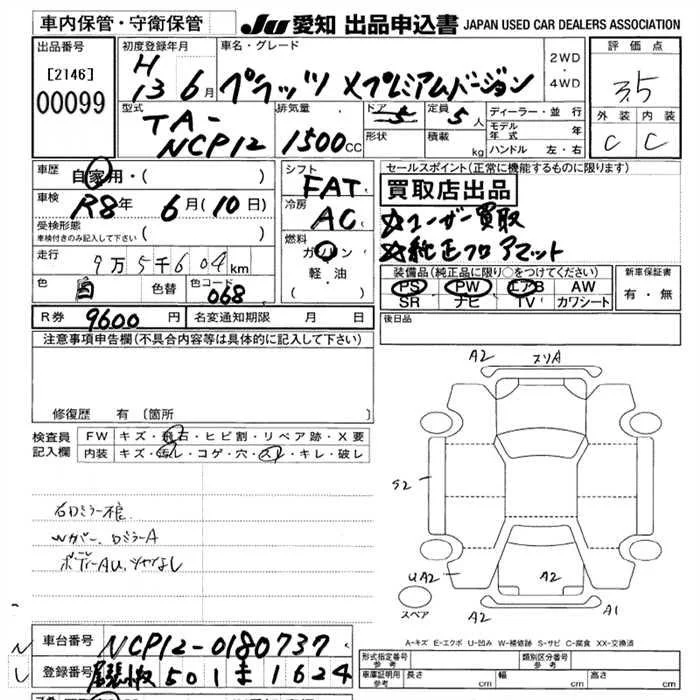 車内保管・守衛保管
JU 愛知 出品申込書 JAPAN USED CAR DEALERS ASSOCIATION
出品番号
[2146]
00099
初度登録年月
H 13 6月
車名・グレード
プラッツ Xプレミアムバージョン
2WD
・
4WD
評価点
3.5
外装 内装
C C
型式
TA-
NCP12
排気量
1500CC
ドア 5
形状
定員 5人
積載 kg
ディーラー・並行
モデル年式 年
ハンドル 左・右
車歴
自家用・( )
車検
R8年 6月(10日)
受検形態
車検付きのみ記入して下さい ( )
走行
9万5千604km
色 白 色替 色コード 068
シフト
FAT
冷房
AC
燃料
ガソリン
軽・油
( )
セールスポイント(正常に機能するものに限ります)
買取店出品
☆ユーザー買取
☆純正フロアマット
装備品(純正品に限り○をつけてください)
PS PW エアB AW
SR ナビ TV カワシート
新車保証書
有・無
R券 9600円 名変通知期限 月 日
後日品
注意事項申告欄(不具合内容等は具体的に記入して下さい)
修復歴 有〔箇所 〕
検査員
記入欄
FW キズ・飛石・ヒビ割・リペア跡・X要
内装 キズ・汚レ・コゲ・穴・スレ・キレ・破レ
A2 スリA
S2
UA2
A2
A2 A1
スペア
Wガバー、ロミラーA
ボディーAU、ツヤなし
A-キズ E-エクボ U-凹み W-補修跡 S-サビ C-腐食 XX-交換済
車台番号 NCP12-0180737
登録番号 501 1624
形式指定番号
参考
類別区分番号
参考
車庫証明用
参考
長さ cm 幅 cm 高さ cm